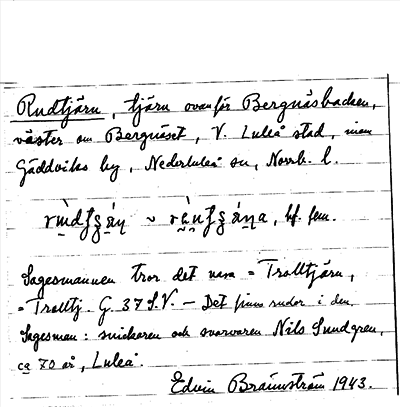 Rudtjärn, tjärn ovanför Bergnäsbacken,
väster om Bergnäset, V. Luleå stad, inom
Gäddviks by, Nederluleå sn, Norrb. l.
bf. fem.
Sagesmannen tror det vara = Trolltjärn,
= Trolltj. G. 37 S.V. — Det finns rudor i den.
Sagesman: snickaren och svarvaren Nils Sundgren,
ca 70 år, Luleå.
Edvin Brännström 1943.